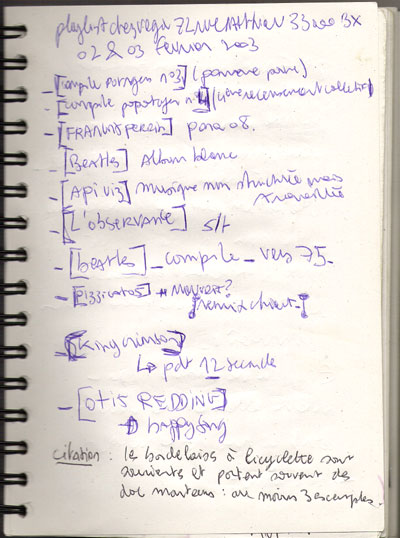 playlist chez regis 72 rue Arthur 33000 BX
02 & 03 février 2003
- [compile n°3] (
- [compile popotages n°4] (4ème recensement collectif)
- [FRANK] para 08.
- [Beatles] Album blanc
- [Apiviz] musique non structurée mais
travaillée
- [L'observante] s/t
- [beatles] _ compile _ vers 75.
- [Pizzicato 5] → ?
[remix]
- [King crimson]
↳ pdt 12 seconde
- [otis REDDING]
→ happy song
citation : les bordelaises à bicyclette sont
souriantes et portent souvent des
doc martens : au moins 3 exemples.